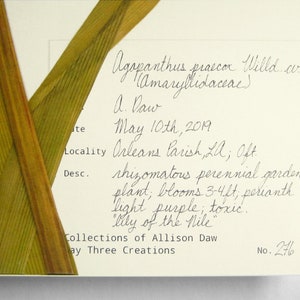 Agapanthus praecox Willd
(Amaryllidaceae)
A. Daw
ate May 10th, 2019
Locality Orleans Parish, LA; 0ft
Desc. rhizomatous perennial garden
plant, blooms 3-4ft, perianth
light purple; toxic.
"lily of the Nile"
Collections of Allison Daw
ay Three Creations No. 276